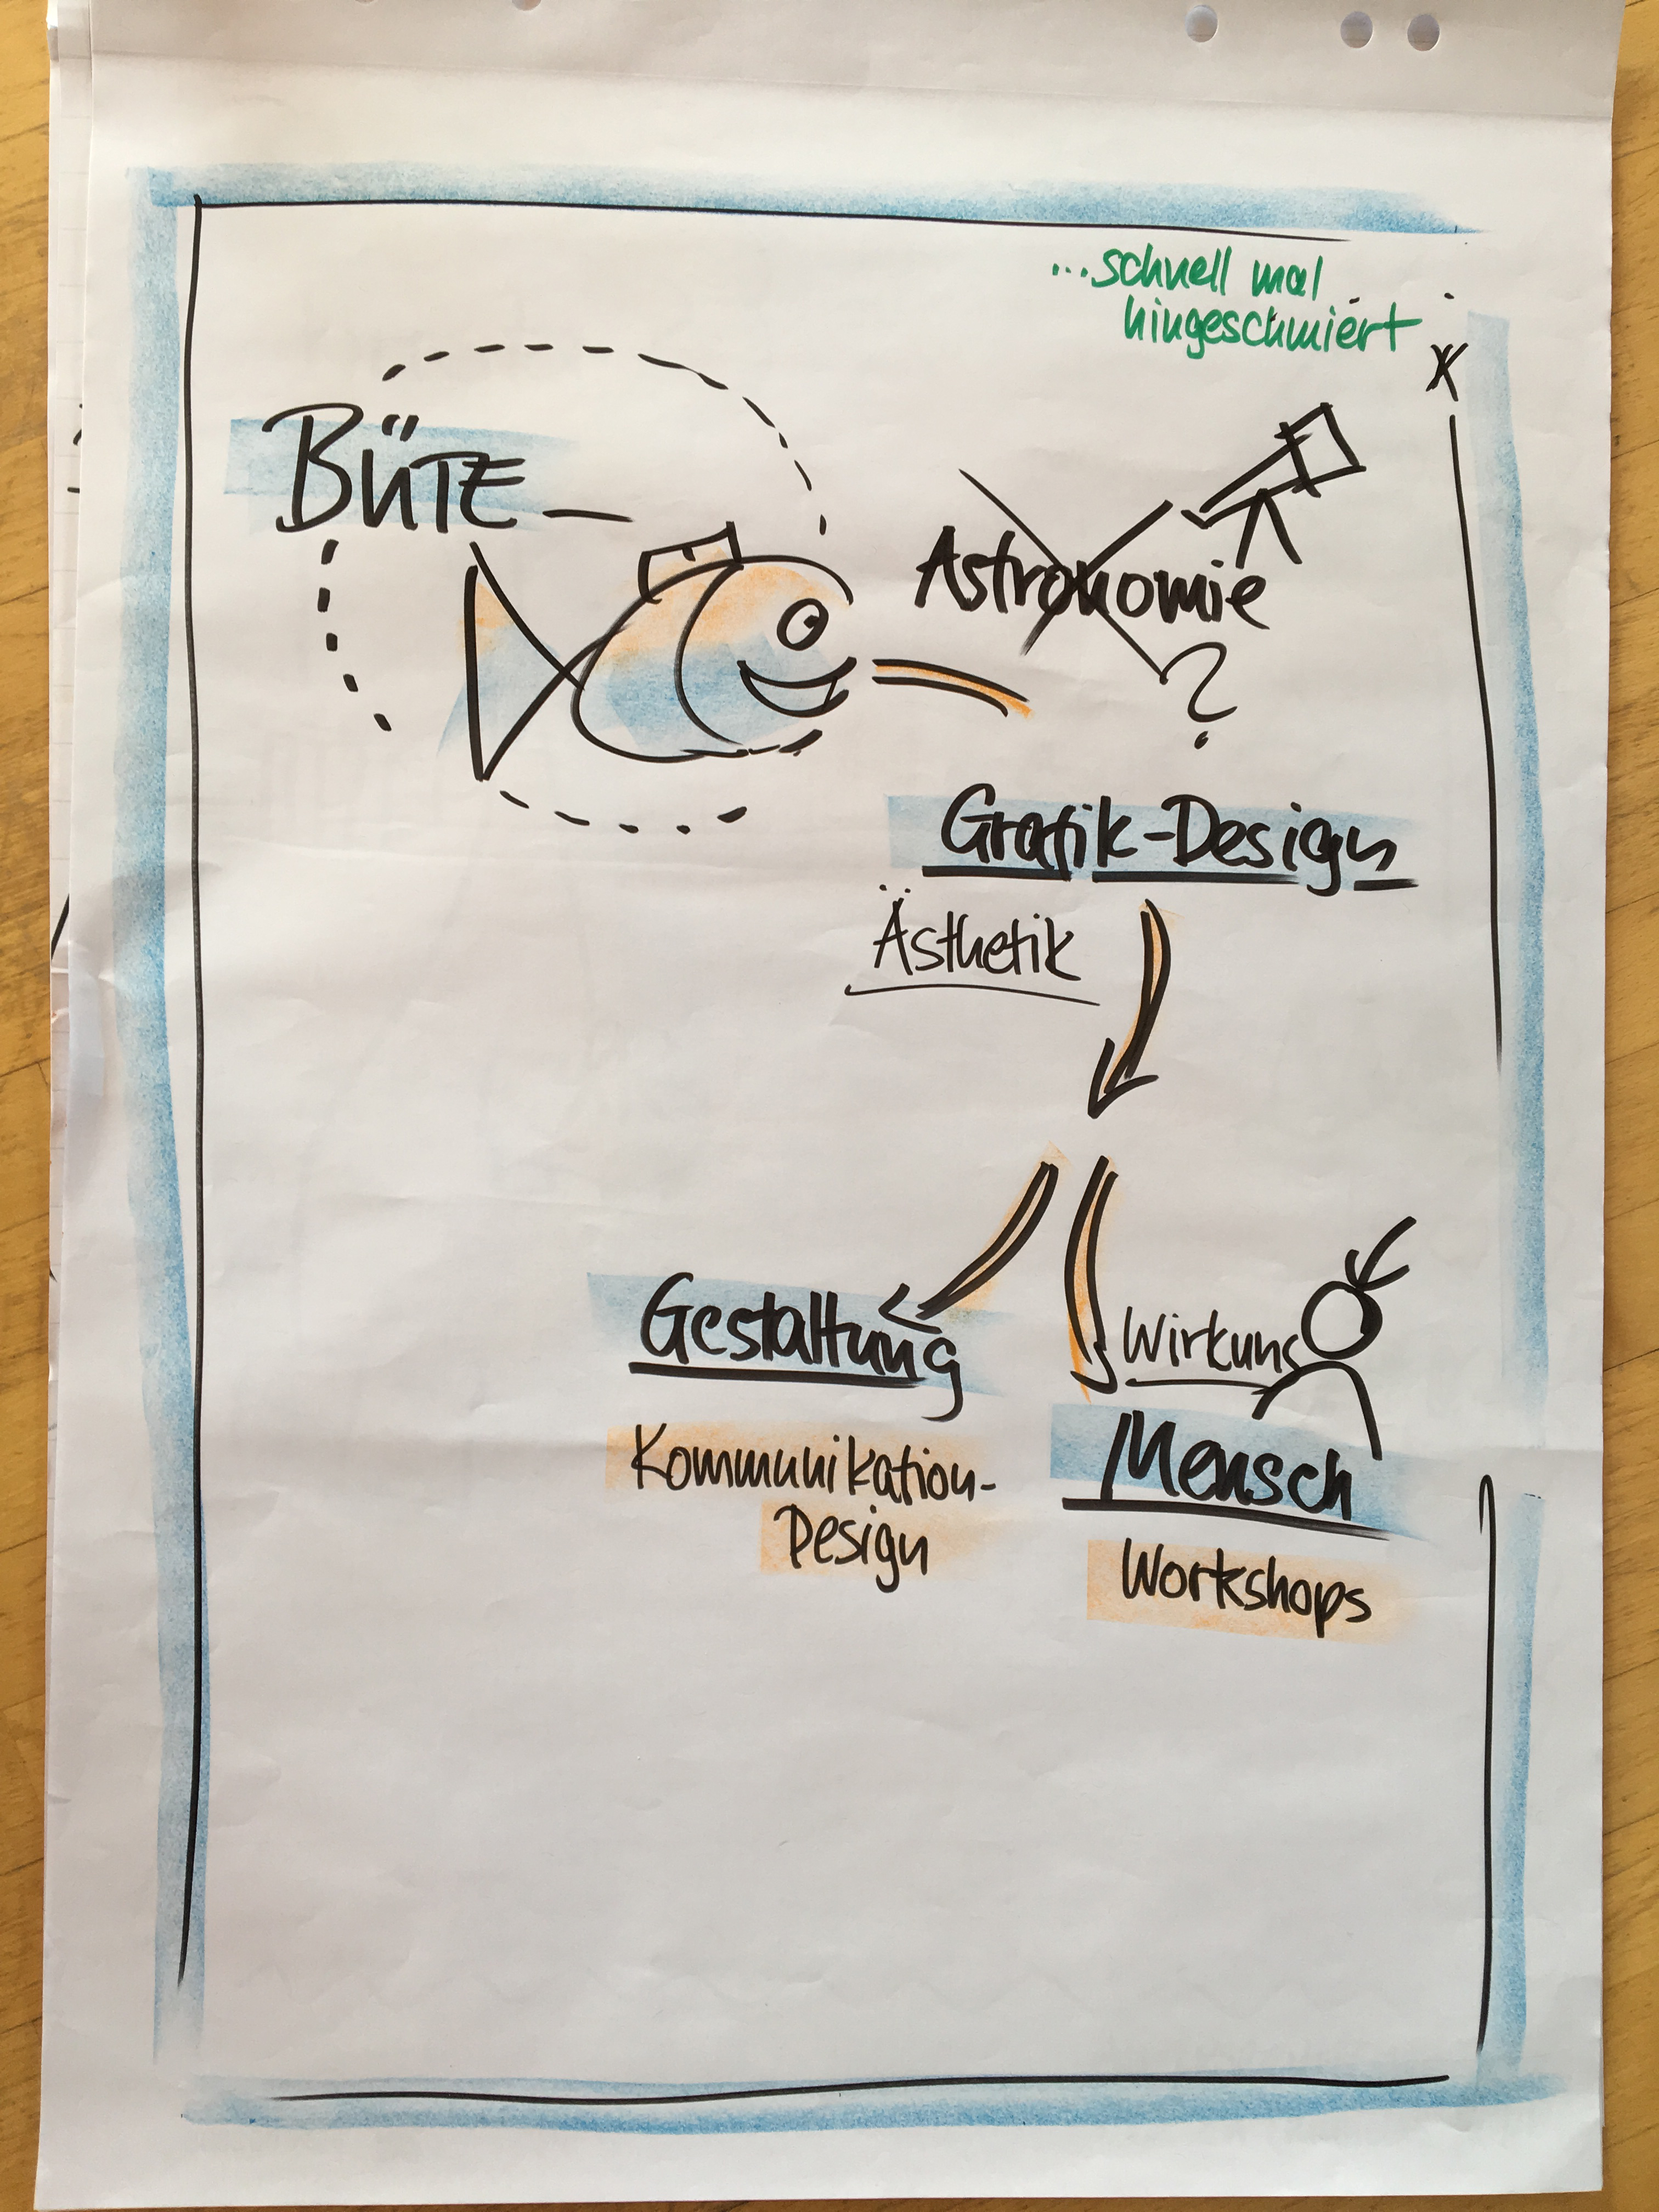 ...schnell mal
hingeschmiert
BÜTE-
Astronomie
?
Grafik-Design
Ästhetik
Gestaltung
Wirkung
Kommunikation-
Design
Mensch
Workshops